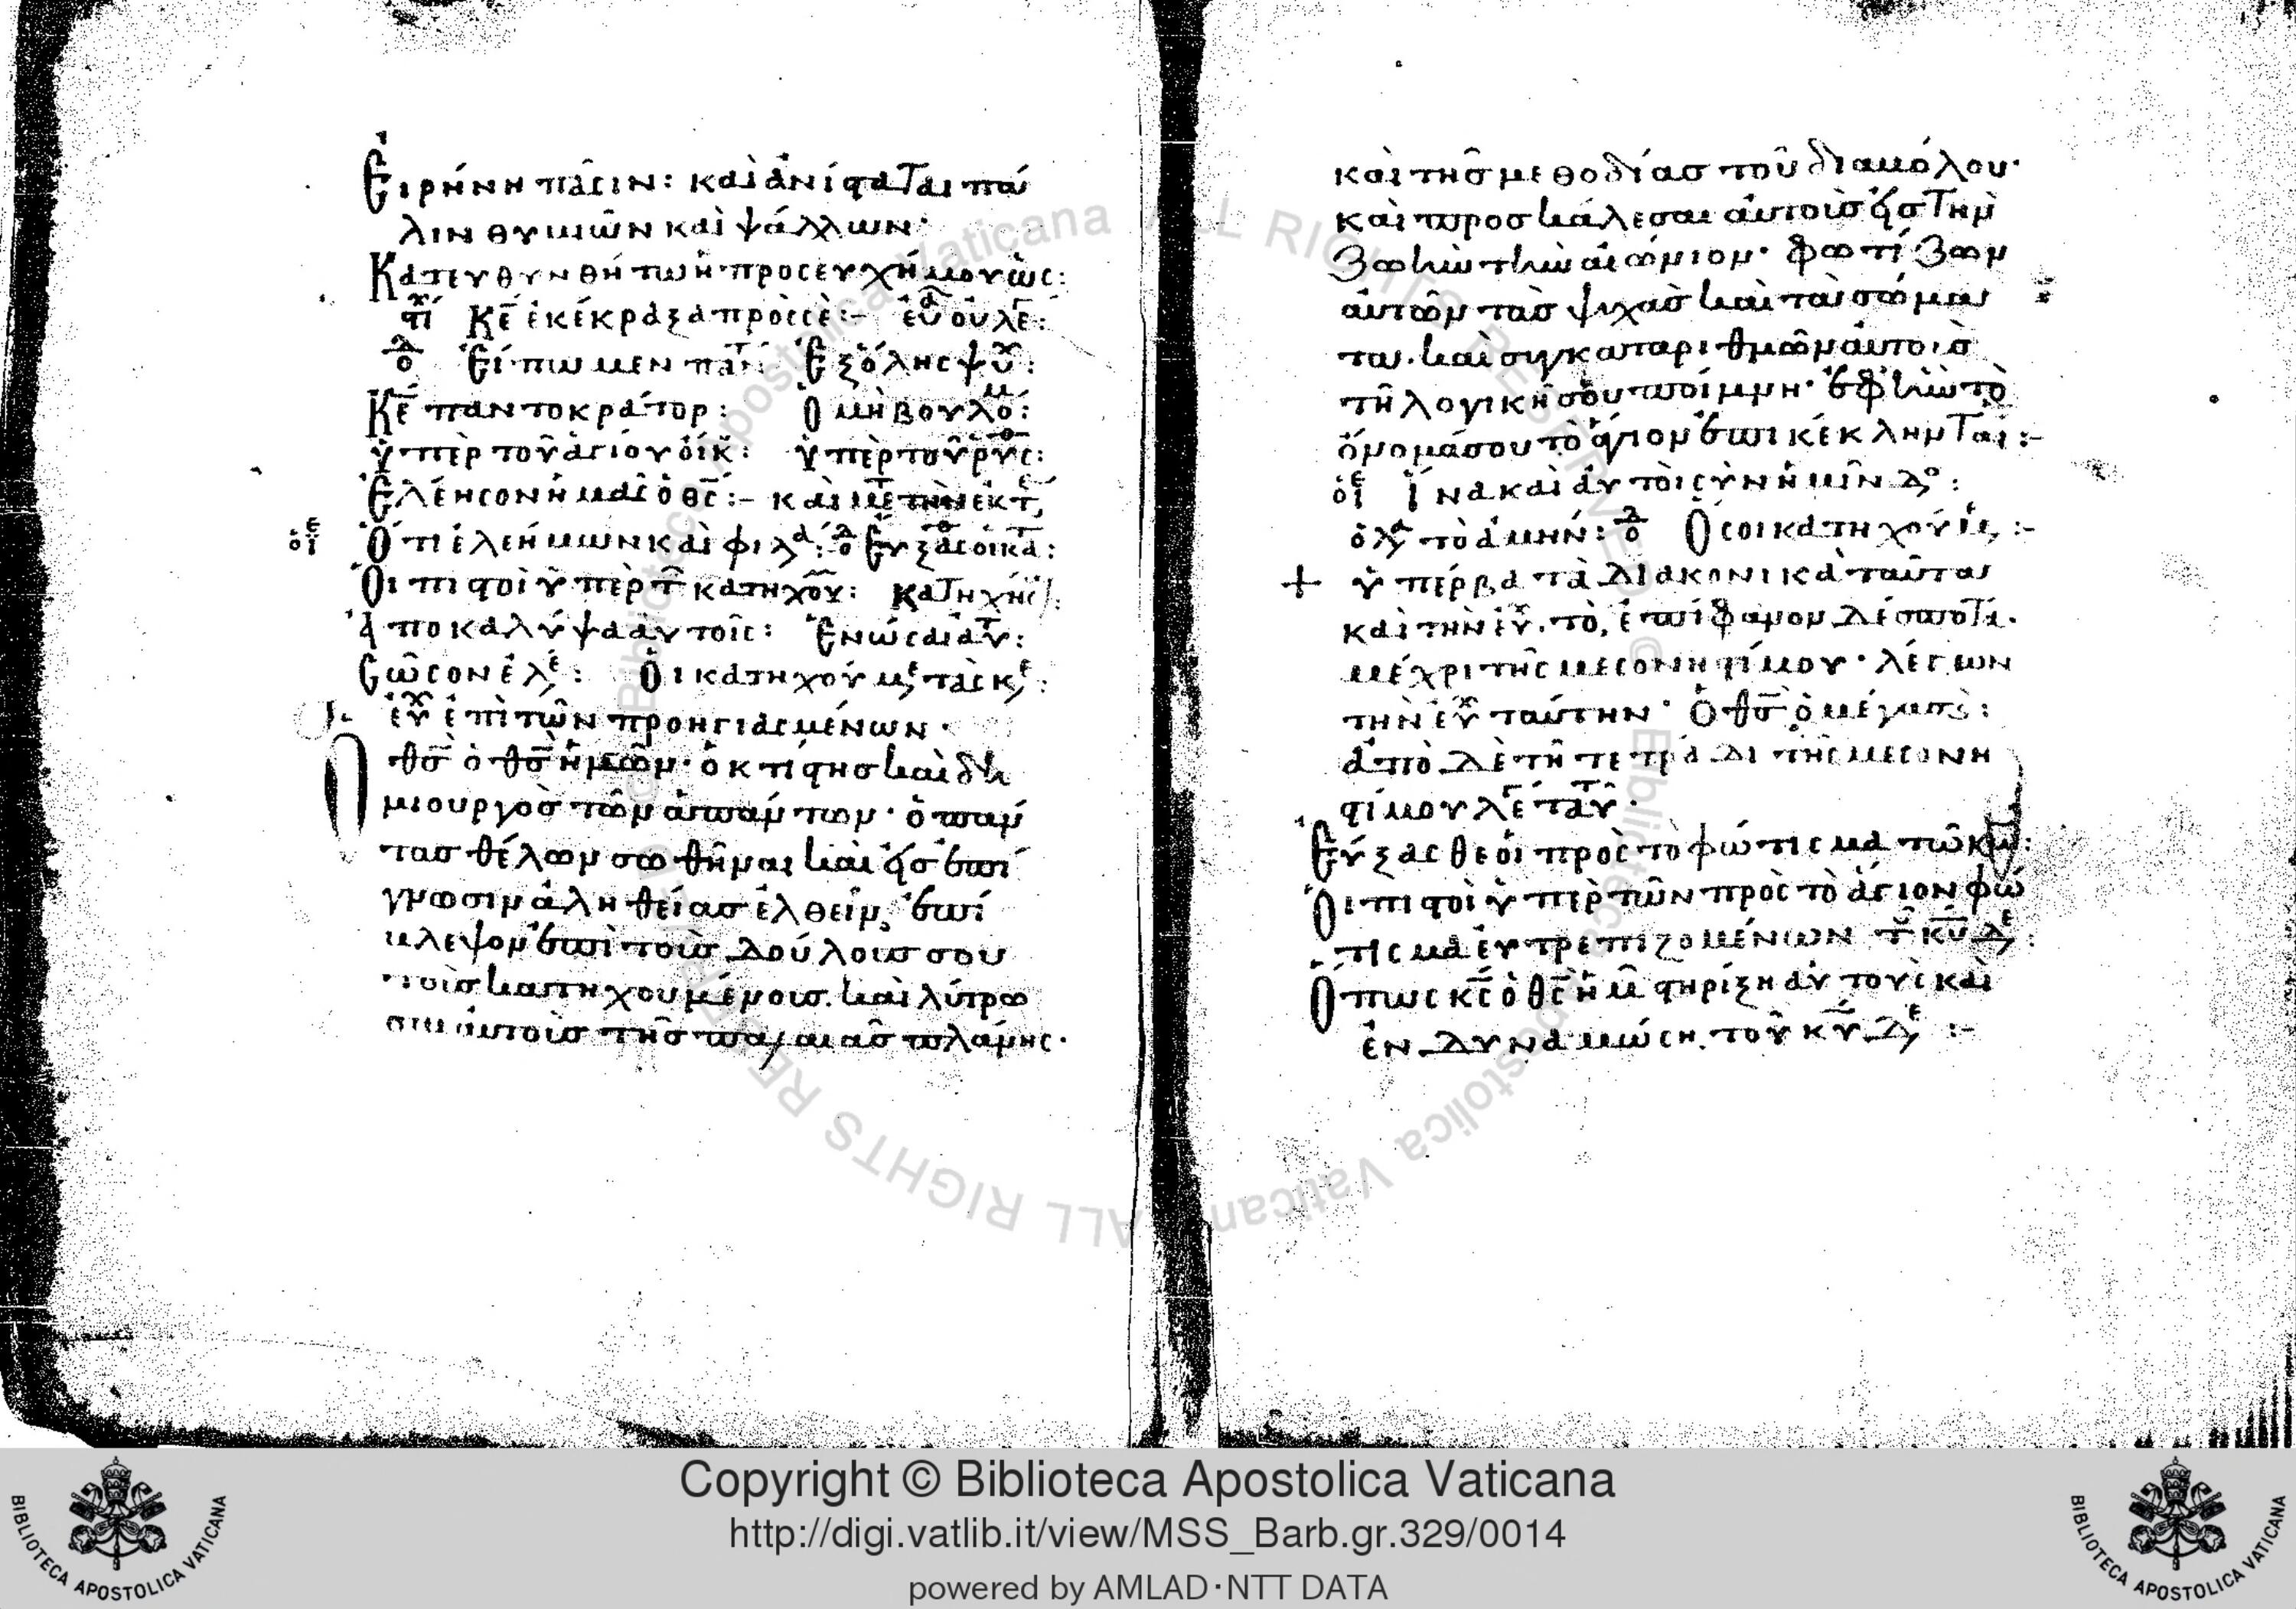 Εἰρήνη πᾶσιν: καὶ ἀνίσταται πά
λιν θυμιῶν καὶ ψάλλων·
Κατευθυνθήτω ἡ προσευχή μου ὡς:
στί Κε ἐκέκραξα πρὸς σὲ:-
Εἴπωμεν πάντ: Ἐξ ὅλης ψυ:
Κε παντοκράτορ: Ὁ μὴ βουλό:
ὑπὲρ τοῦ ἁγίου οἴκ: ὑπὲρ τοῦ ῥυς:
Ἐλέησον ἡμᾶς ὁ θς:- καὶ με τὴν ἐκτ
Ὅτι ἐλεήμων καὶ φιλα: Εὔξασθε οἱ κατ:
Οἱ πιστοὶ ὑπὲρ τ κατηχου: κατηχήσ:
Ἀποκαλύψα αὐτοῖς: Ἑνώσαι αὐτ:
Σῶσον ἐλε: Οἱ κατηχούμε τὰς κε:
εὐχ ἐπὶ τῶν προηγιασμένων·
Ὁ θσ ὁ θσ ἡμῶν· ὁ κτίστησ καὶ δη
μιουργὸσ τῶν ἁπάντων· ὁ πάν
τασ θέλων σωθῆναι καὶ εἰσ ἐπί
γνωσιν ἀληθείασ ἐλθεῖν, ἐπί
βλεψον ἐπὶ τοὺσ δούλουσ σου
τοὺσ κατηχουμένουσ. καὶ λύτρω
σαι αὐτοὺσ τῆσ παλαιᾶσ πλάνης·
καὶ τῆσ μεθοδίασ τοῦ διαβόλου·
καὶ προσκάλεσαι αὐτοὺσ εἰσ τὴν
ζωὴν τὴν αἰώνιον· φωτίζων
αὐτῶν τὰσ ψυχὰσ καὶ τὰ σώμα
τα. καὶ συγκαταριθμῶν αὐτοὺσ
τῇ λογικῇ σου ποίμνῃ· ἐφ' ἣν τὸ
ὄνομά σου τὸ ἅγιον ἐπικέκληνται:-
Ἵνα καὶ αὐτοὶ σὺν ἡμῖν δο:
ὁ λα τὸ ἀμήν: ὁ δ Ὅσοι κατηχούμε:-
+ ὑπέρβα τὰ διακονικὰ ταῦτα
καὶ τὴν εὐχ. τὸ, ἐπίφανον δέσποτα.
μέχρι τῆς μεσονηστίμου· λέγων
τὴν εὐχ ταύτην· Ὁ θσ ὁ μέγασ:
ἀπὸ δὲ τῇ τετράδι τῆς μεσονη
στίμου λέγε ταῦτ·
Εὔξασθε οἱ πρὸς τὸ φώτισμα τῶ κω:
Οἱ πιστοὶ ὑπὲρ τῶν πρὸς τὸ ἅγιον φώ
τισμα εὐτρεπιζομένων τ κυ δε:
Ὅπως κς ὁ θς ἡμ στηρίξη αὐτοὺς καὶ
ἐνδυναμώση. τοῦ κυ δε :-
Copyright © Biblioteca Apostolica Vaticana
http://digi.vatlib.it/view/MSS_Barb.gr.329/0014
powered by AMLAD·NTT DATA